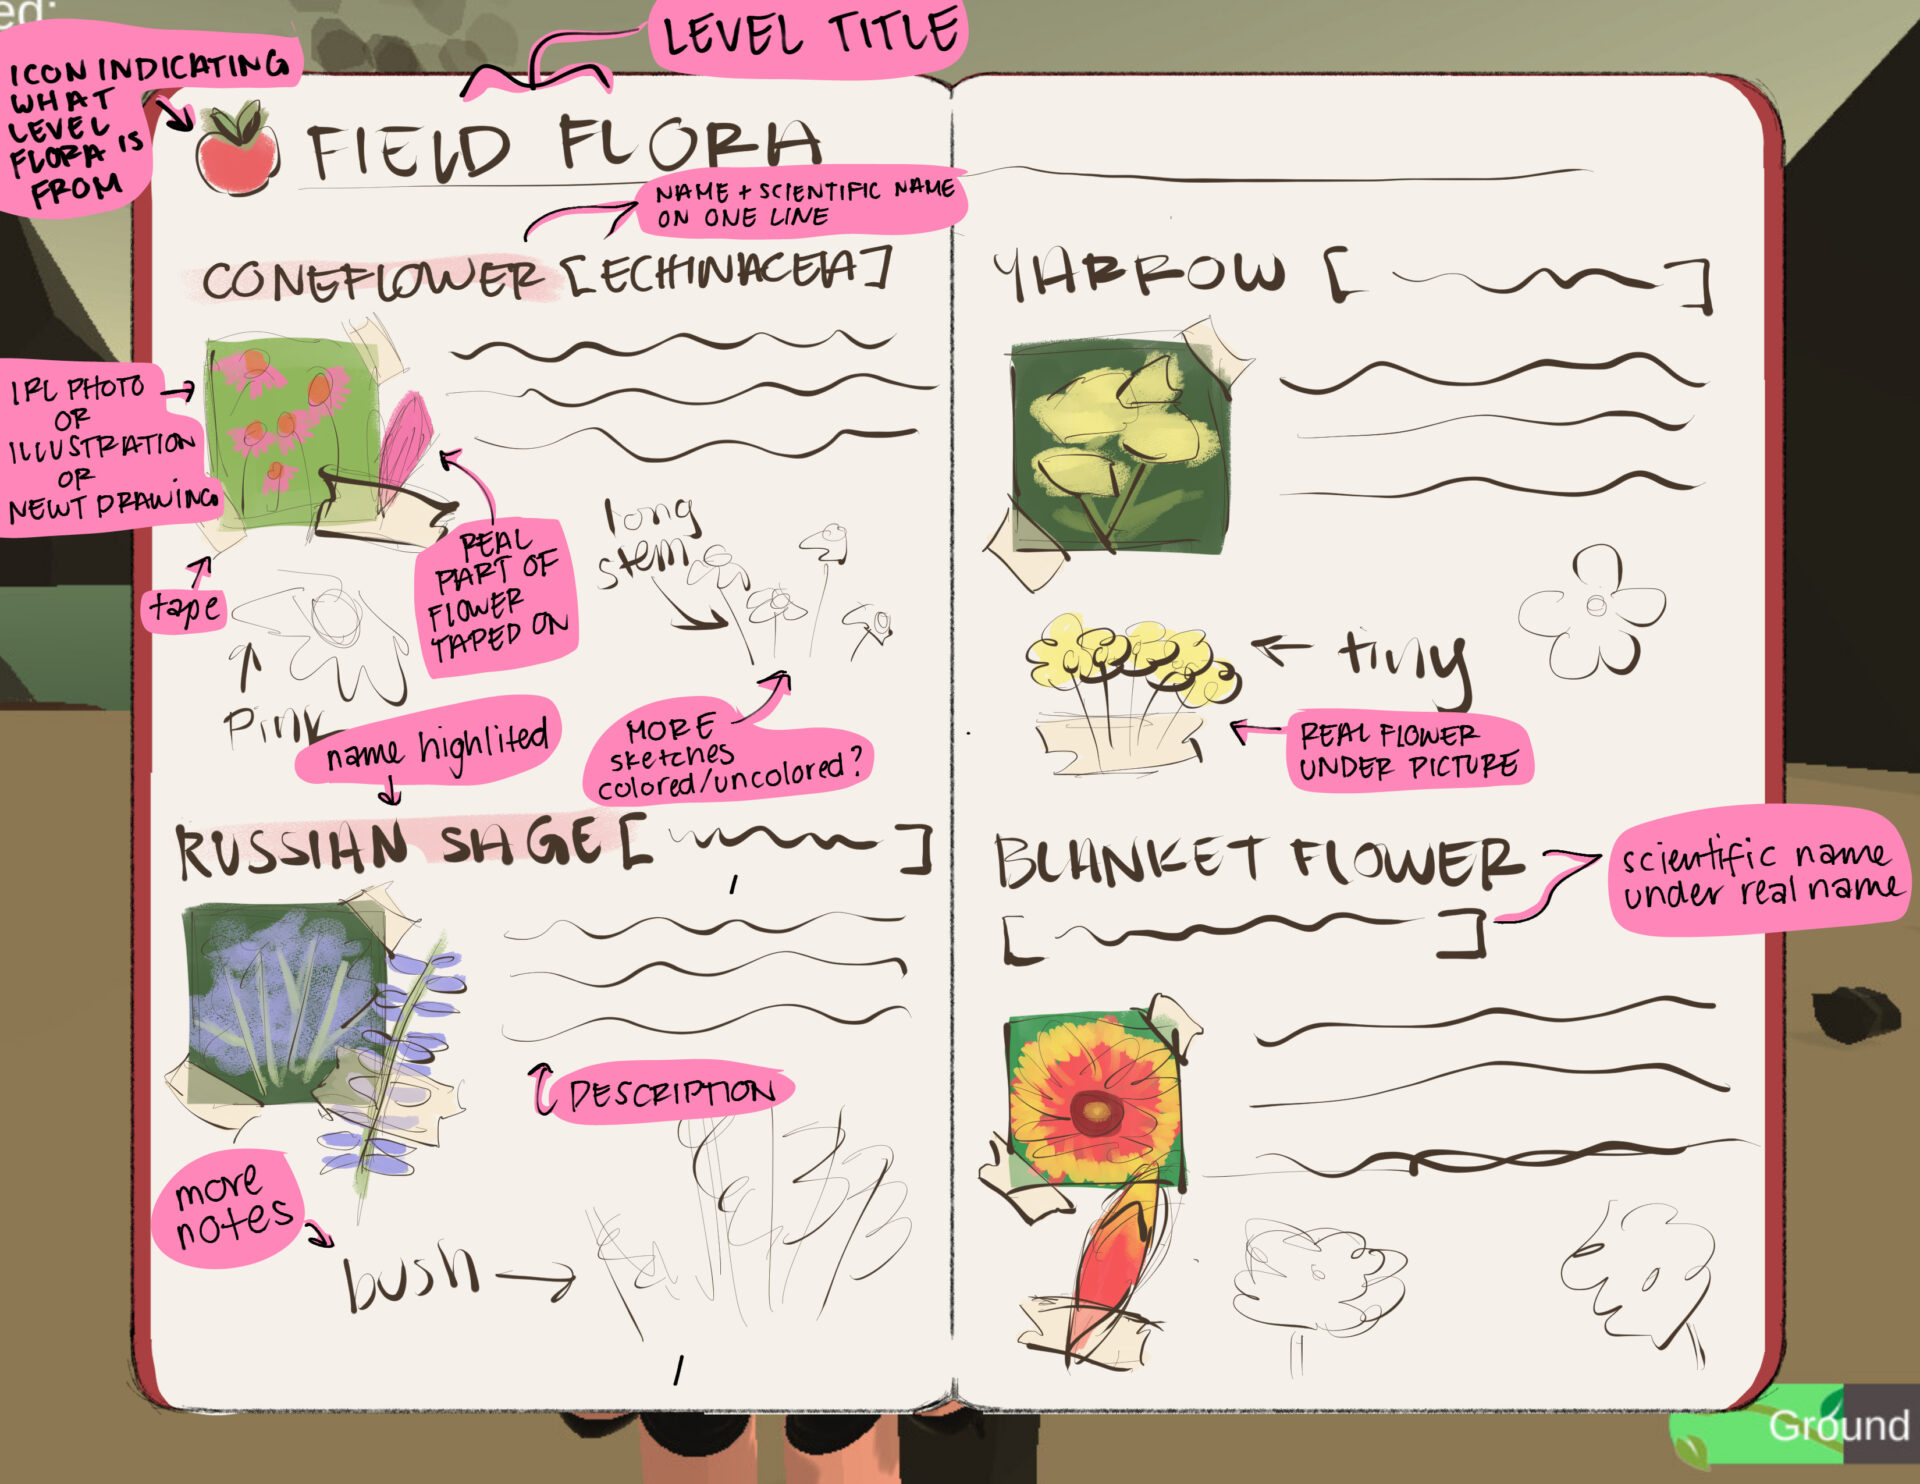 ed:
LEVEL TITLE
ICON INDICATING
WHAT
LEVEL
FLORA IS
FROM
FIELD FLORA
NAME + SCIENTIFIC NAME
ON ONE LINE
CONEFLOWER [ECHINACEIA]
IRL PHOTO
OR
ILLUSTRATION
OR
NEWT DRAWING
tape
REAL
PART OF
FLOWER
TAPED ON
long
stem
pink
MORE
sketches
colored/uncolored?
name highlited
RUSSIAN SAGE [ ]
DESCRIPTION
more
notes
bush
YARROW [ ]
tiny
REAL FLOWER
UNDER PICTURE
BLANKET FLOWER
[ ]
scientific name
under real name
Ground